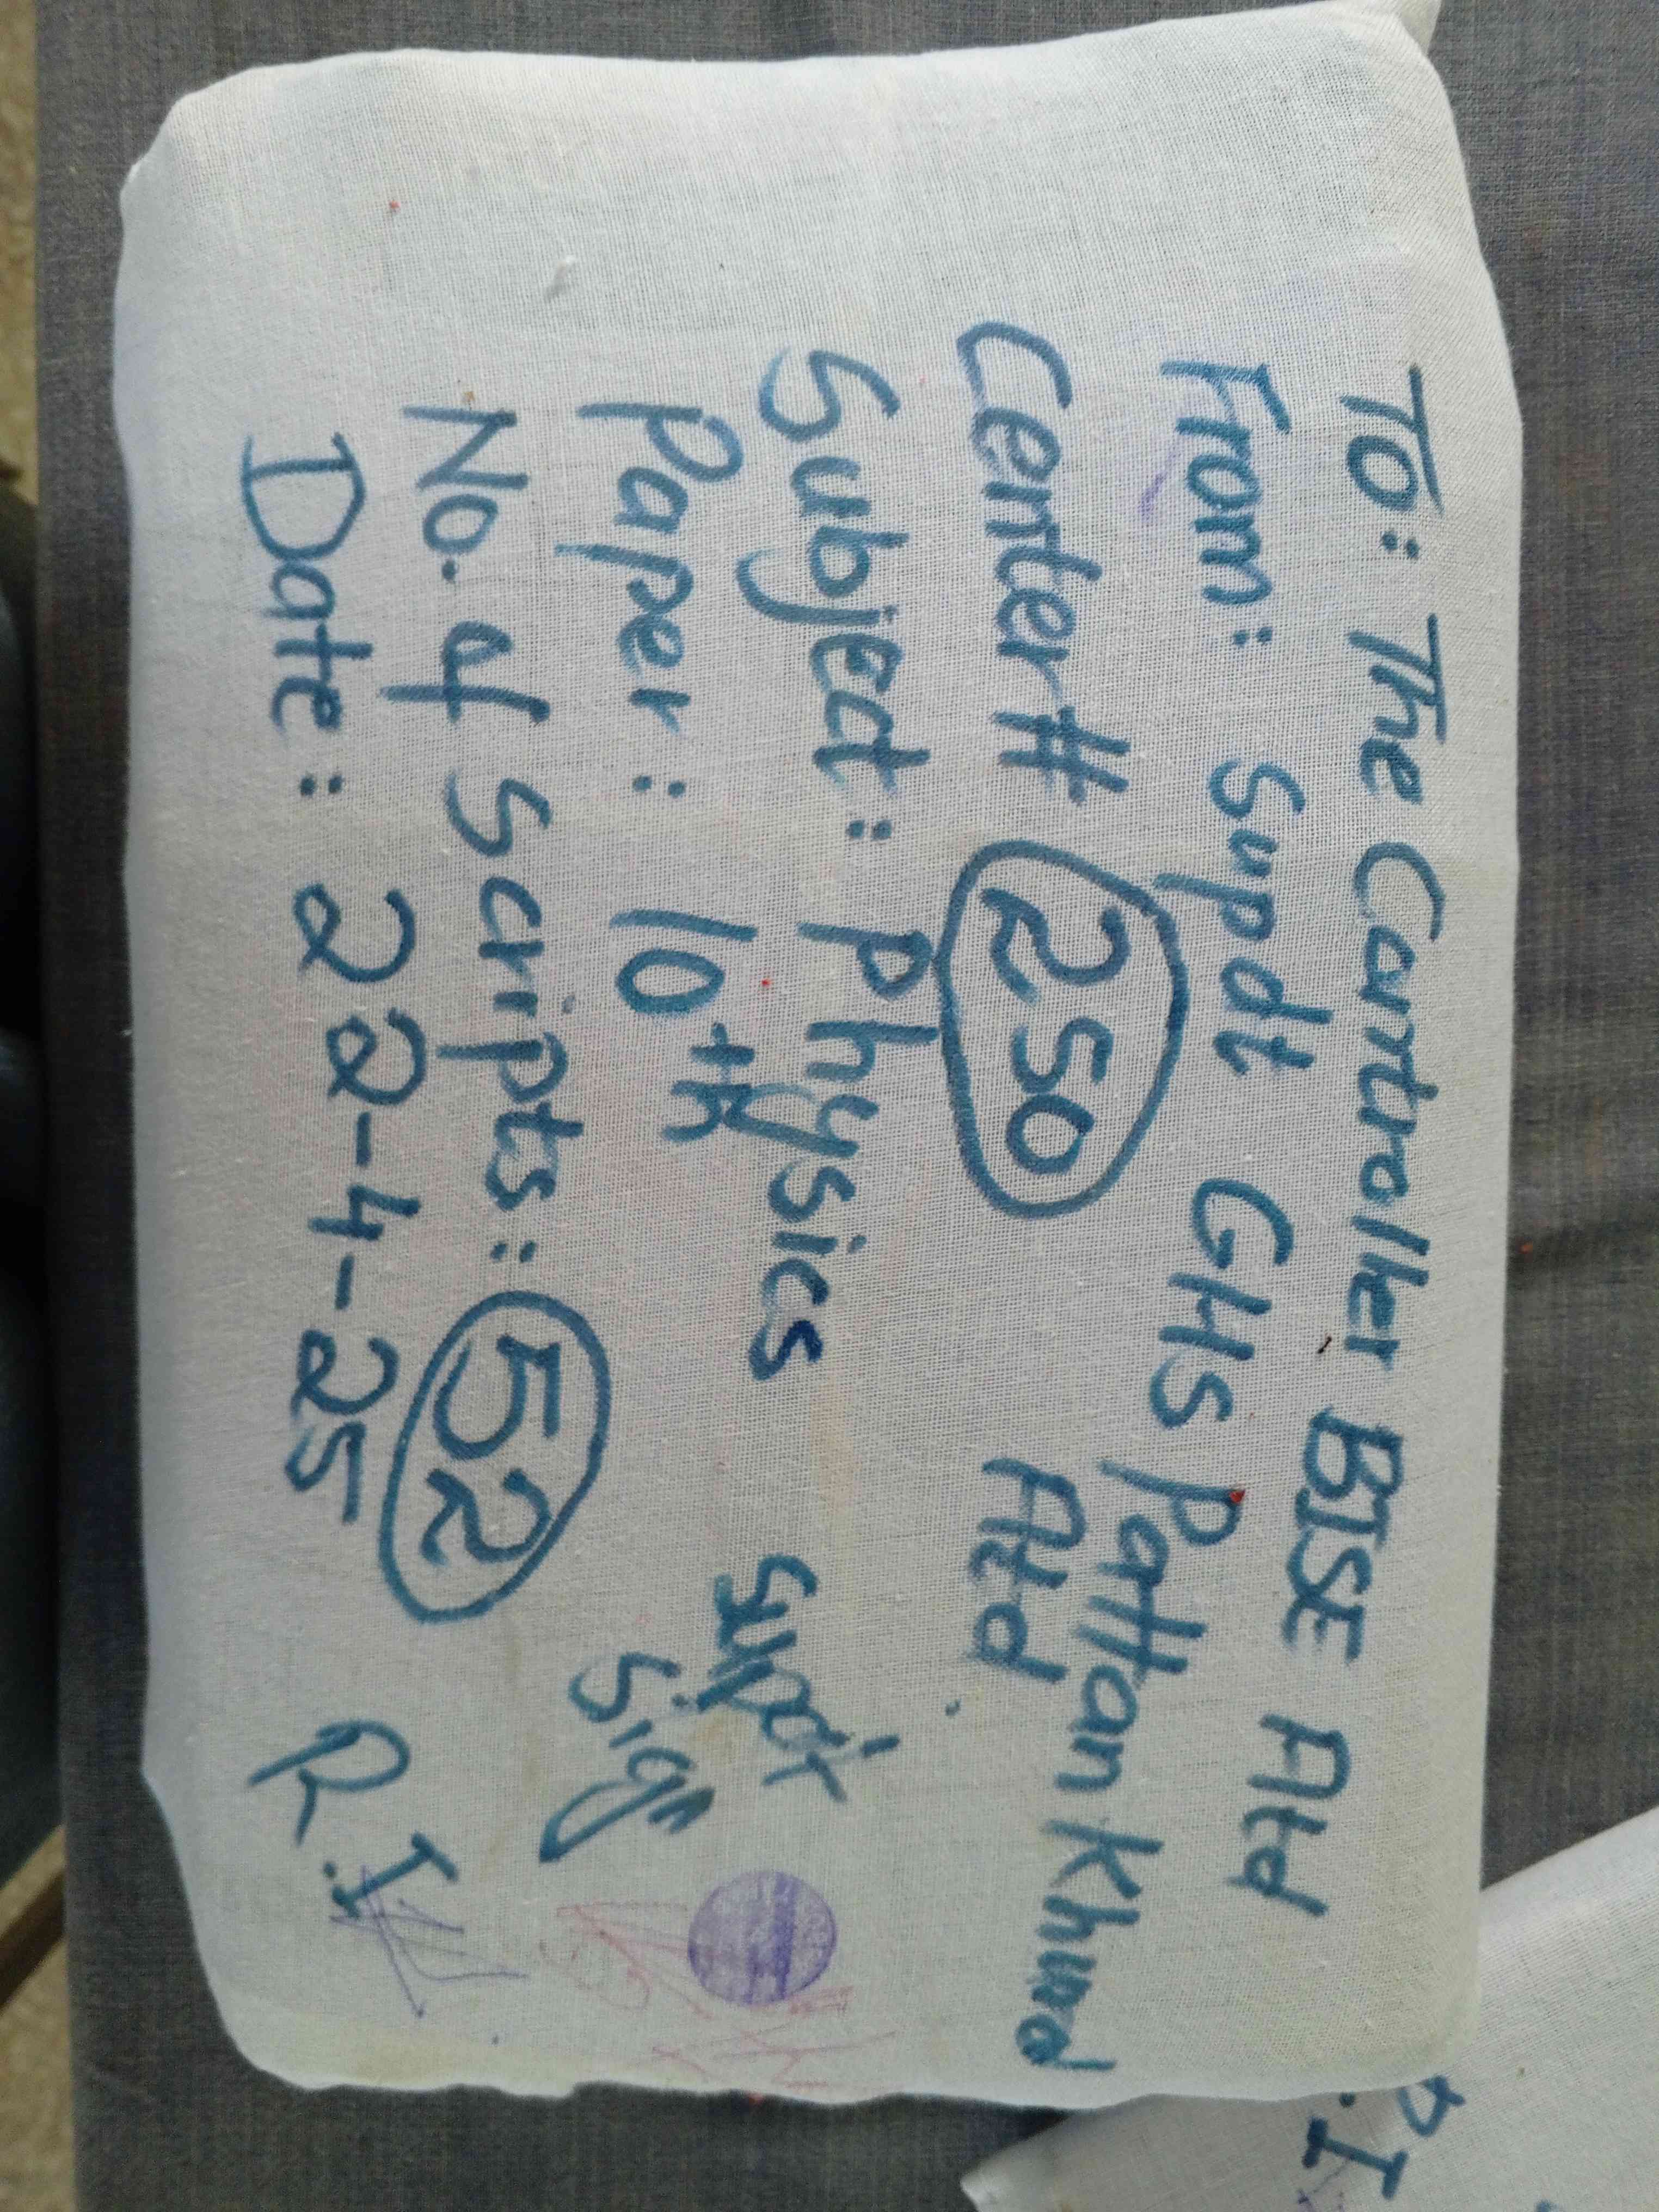 To: The Controller BISE Atd
From: Supdt GHS Pattan Khurd
Atd.
Center# 250
Subject: Physics
Paper: 10th
Supdt
Sign
No. of Scripts: 52
Date: 22-4-25
R.I